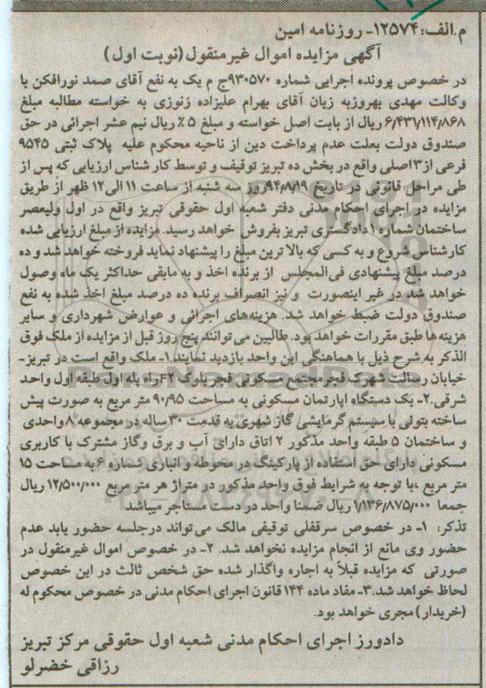 م.الف:۱۲۵۷۴- روزنامه امین
آگهی مزایده اموال غیرمنقول(نوبت اول)
در خصوص پرونده اجرایی شماره ۹۳۰۵۷۰ج م یک به نفع آقای صمد نورافکن با
وکالت مهدی بهروزبه زیان آقای بهرام علیزاده زنوزی به خواسته مطالبه مبلغ
۶/۴۳۱/۱۱۴/۸۶۸ ریال از بابت اصل خواسته و مبلغ ۵٪ ریال نیم عشر اجرائی در حق
صندوق دولت بعلت عدم پرداخت دین از ناحیه محکوم علیه پلاک ثبتی ۹۵۴۵
فرعی از۳اصلی واقع در بخش ده تبریز توقیف و توسط کارشناس ارزیابی که پس از
طی مراحل قانونی در تاریخ ۹۴/۸/۱۹روز سه شنبه از ساعت ۱۱ الی۱۲ ظهر از طریق
مزایده در اجرای احکام مدنی دفتر شعبه اول حقوقی تبریز واقع در اول ولیعصر
ساختمان شماره ۱دادگستری تبریز بفروش خواهد رسید. مزایده از مبلغ ارزیابی شده
کارشناس شروع و به کسی که بالاترین مبلغ را پیشنهاد نماید فروخته خواهد شد و ده
درصد مبلغ پیشنهادی فی المجلس از برنده اخذ و به مابقی حداکثر یک ماه وصول
خواهد شد در غیر اینصورت و نیز انصراف برنده ده درصد مبلغ اخذ شده به نفع
صندوق دولت ضبط خواهد شد. هزینه‌های اجرائی و عوارض شهرداری و سایر
هزینه‌ها طبق مقررات خواهد بود. طالبین می توانند پنج روز قبل از مزایده از ملک فوق
الذکر به شرح ذیل با هماهنگی این واحد بازدید نمایند.۱- ملک واقع است در تبریز-
خیابان رسالت شهرک فجر مجتمع مسکونی فجر بلوک ۴۷ راه پله اول طبقه اول واحد
شرقی.۲- یک دستگاه اپارتمان مسکونی به مساحت ۹۰/۹۵ متر مربع به صورت پیش
ساخته بتونی با سیستم گرمایشی گاز شهری به قدمت ۳۰ساله در مجموعه ۸ واحدی
و ساختمان ۵ طبقه واحد مذکور ۲ اتاق دارای آب و برق وگاز مشترک با کاربری
مسکونی دارای حق استفاده از پارکینگ در محوطه و انباری شماره ۶ به مساحت ۱۵
متر مربع ،با توجه به شرایط فوق واحد مذکور در متراژ هر متر مربع ۱۲/۵۰۰/۰۰۰ ریال
جمعا ۱/۱۳۶/۸۷۵/۰۰۰ ریال ضمنا واحد در دست مستاجر میباشد
تذکر: ۱- در خصوص سرقفلی توقیفی مالک می تواند درجلسه حضور یابد عدم
حضور وی مانع از انجام مزایده نخواهد شد. ۲- در خصوص اموال غیرمنقول در
صورتی که مزایده قبلاً به اجاره واگذار شده حق شخص ثالث در این خصوص
لحاظ خواهد شد.۳- مفاد ماده ۱۴۴ قانون اجرای احکام مدنی در خصوص محکوم له
(خریدار) مجری خواهد بود.
دادورز اجرای احکام مدنی شعبه اول حقوقی مرکز تبریز
رزاقی خضرلو